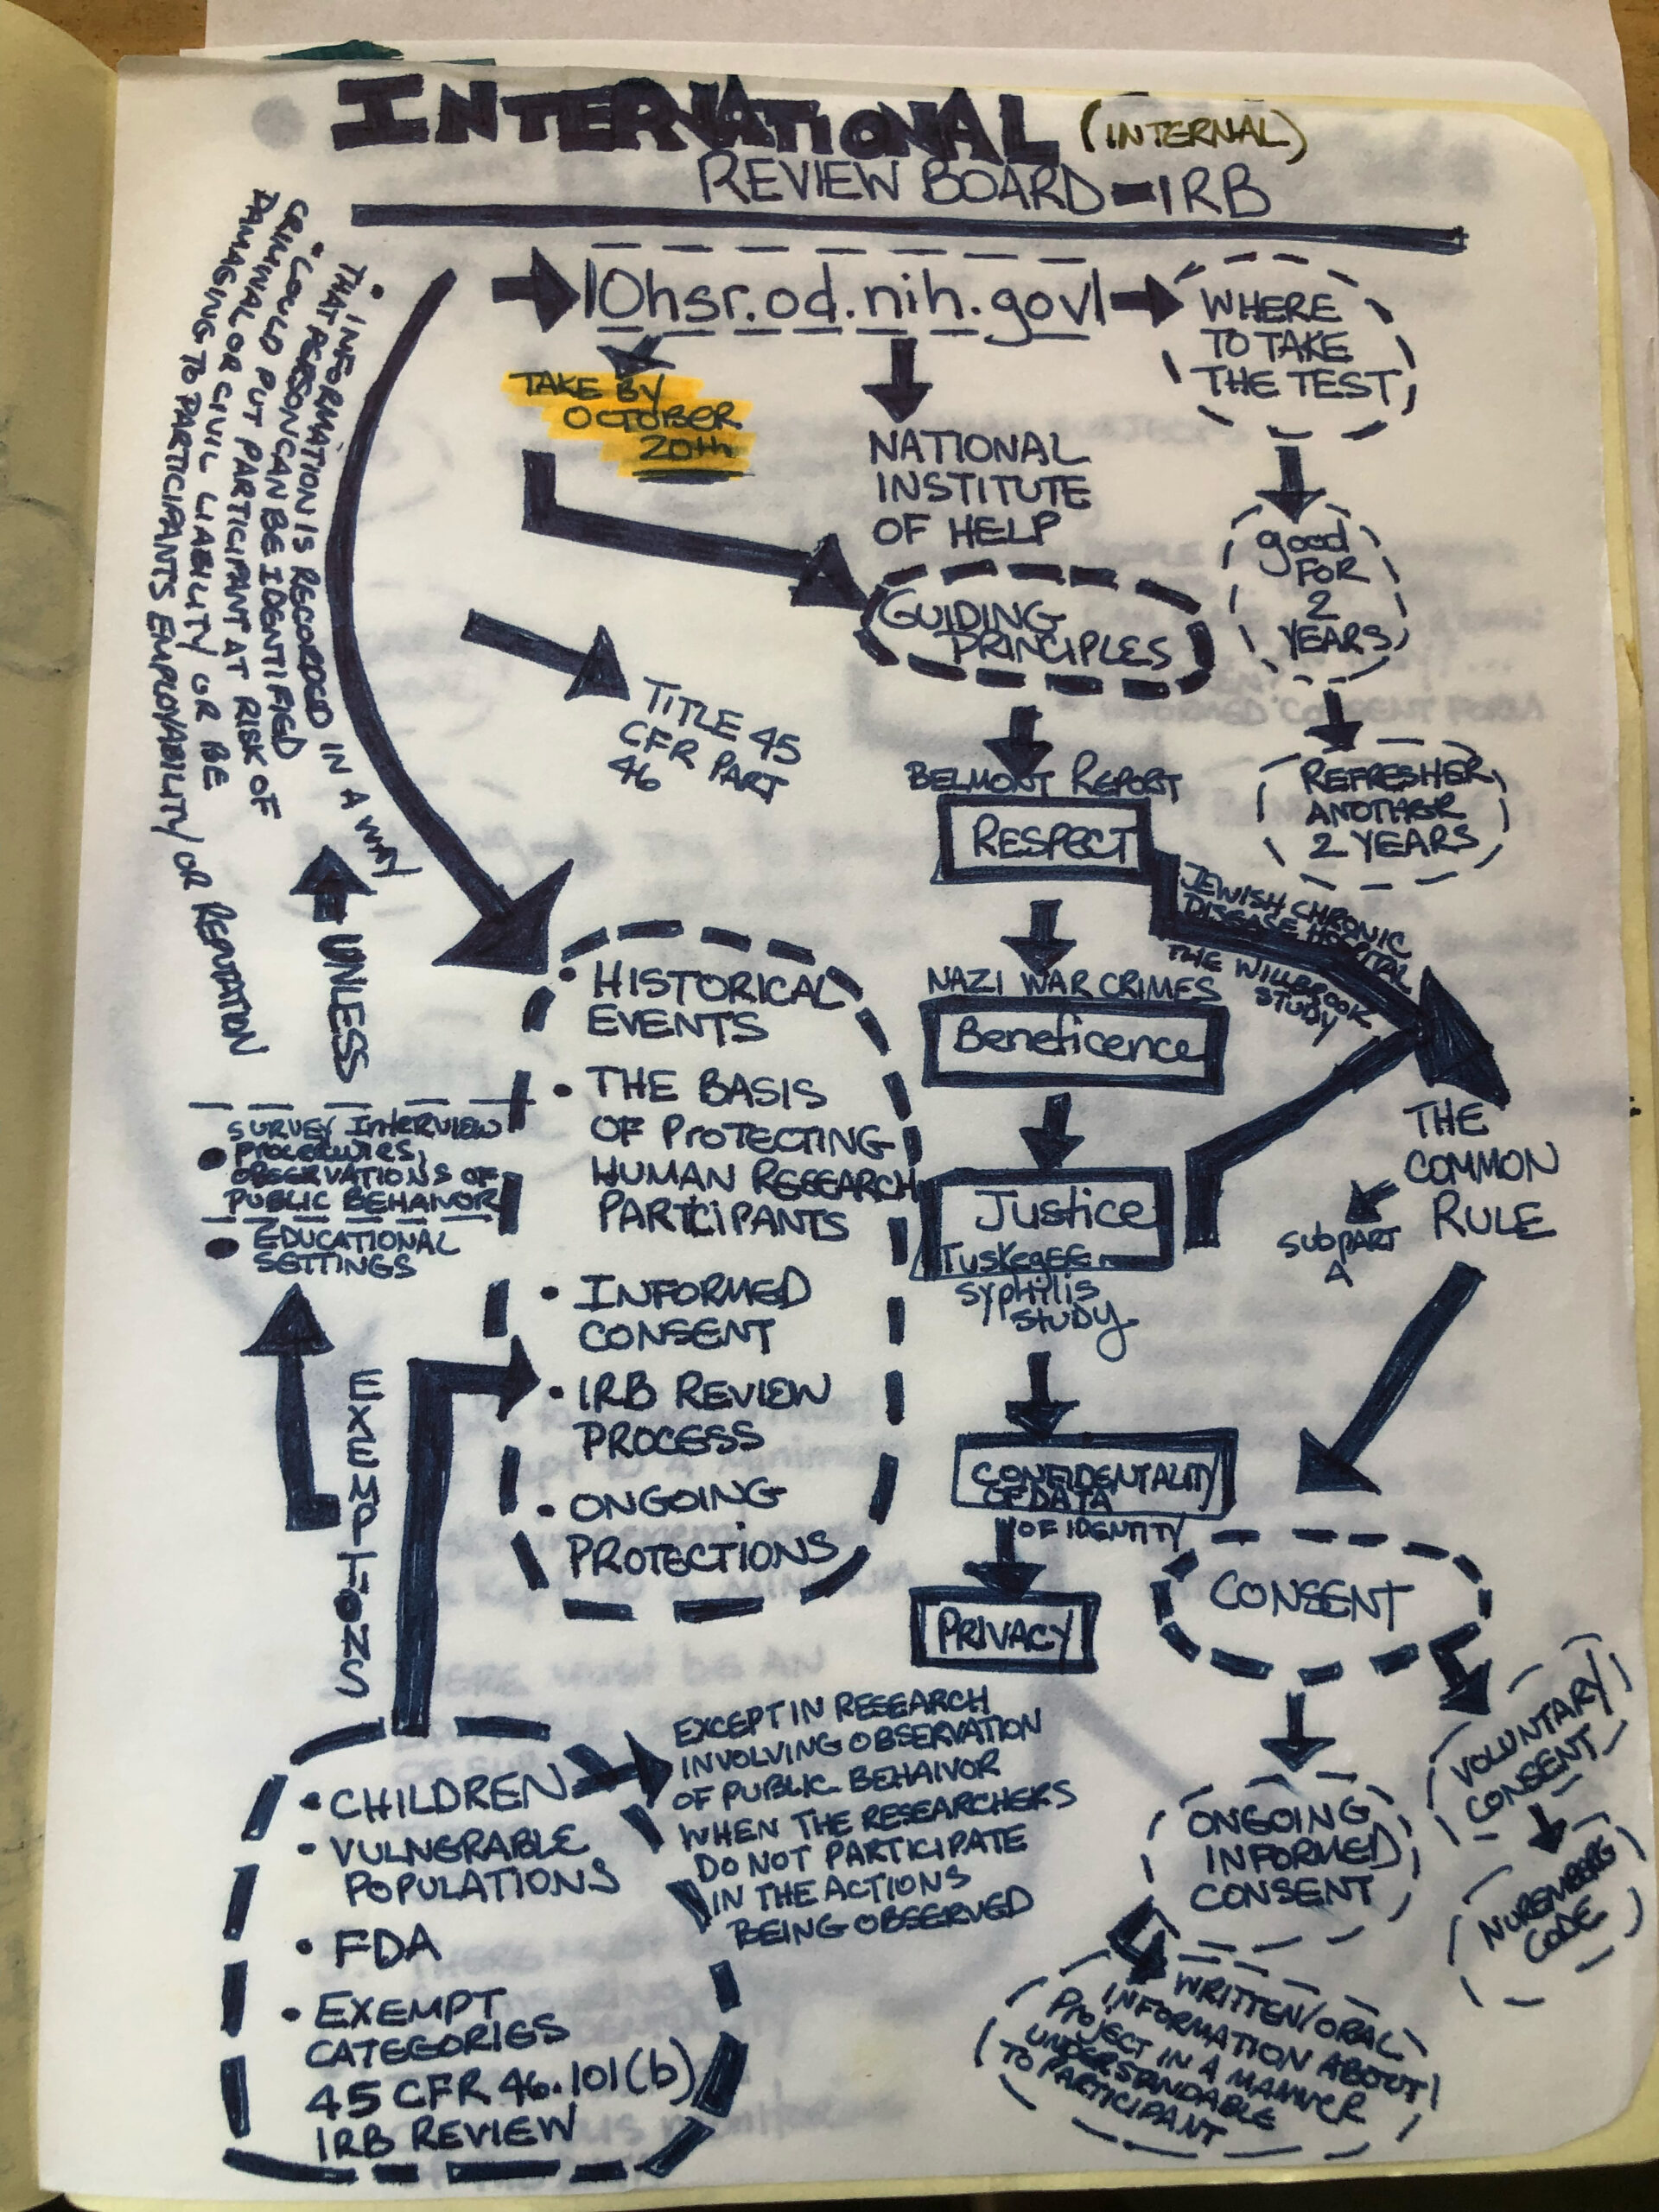 INTERNATIONAL (INTERNAL)
REVIEW BOARD-IRB
Ohsr.od.nih.gov
WHERE
TO TAKE
THE TEST
TAKE BY
OCTOBER
20th
NATIONAL
INSTITUTE
OF HELP
good
FOR
2
YEARS
REFRESHER
ANOTHER
2 YEARS
GUIDING
PRINCIPLES
TITLE 45
CFR PART
46
BELMONT REPORT
RESPECT
JEWISH CHRONIC
DISEASE HOSPITAL
THE WILLBROOK
STUDY
NAZI WAR CRIMES
Beneficence
Justice
Tuskegee
Syphilis
Study
THE
COMMON
RULE
SUBPART
A
CONFIDENTALITY
OF DATA
" OF IDENTITY
PRIVACY
CONSENT
VOLUNTARY
CONSENT
NUREMBERG
CODE
ONGOING
INFORMED
CONSENT
WRITTEN/ORAL
INFORMATION ABOUT
PROJECT IN A MANNER
UNDERSTANDABLE
TO PARTICIPANT
• HISTORICAL
EVENTS
• THE BASIS
OF PROTECTING
HUMAN RESEARCH
PARTICIPANTS
• INFORMED
CONSENT
• IRB REVIEW
PROCESS
• ONGOING
PROTECTIONS
• CHILDREN
• VULNERABLE
POPULATIONS
• FDA
• EXEMPT
CATEGORIES
45 CFR 46.101(b)
IRB REVIEW
EXCEPT IN RESEARCH
INVOLVING OBSERVATION
OF PUBLIC BEHAIVOR
WHEN THE RESEARCHERS
DO NOT PARTICIPATE
IN THE ACTIONS
BEING OBSERVED
EXEMPTIONS
• SURVEY INTERVIEW
PROCEDURES,
OBSERVATIONS OF
PUBLIC BEHAIVOR
• EDUCATIONAL
SETTINGS
UNLESS
• INFORMATION IS RECORDED IN A WAY
THAT PERSON CAN BE IDENTIFIED
• COULD PUT PARTICIPANT AT RISK OF
CRIMINAL OR CIVIL LIABILITY OR BE
DAMAGING TO PARTICIPANTS EMPLOYABILITY OR REPUTATION